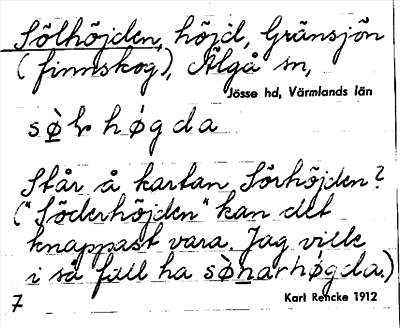 Sölhöjden, höjd, Gränsjön
(finnskog), Älgå sn,
Jösse hd, Värmlands län
sø̀lr hǿgda
Står å kartan Sörhöjden?
("Söderhöjden" kan det
knappast vara. Jag ville
i så fall ha sø̀narhǿgda.)
7
Karl Rencke 1912